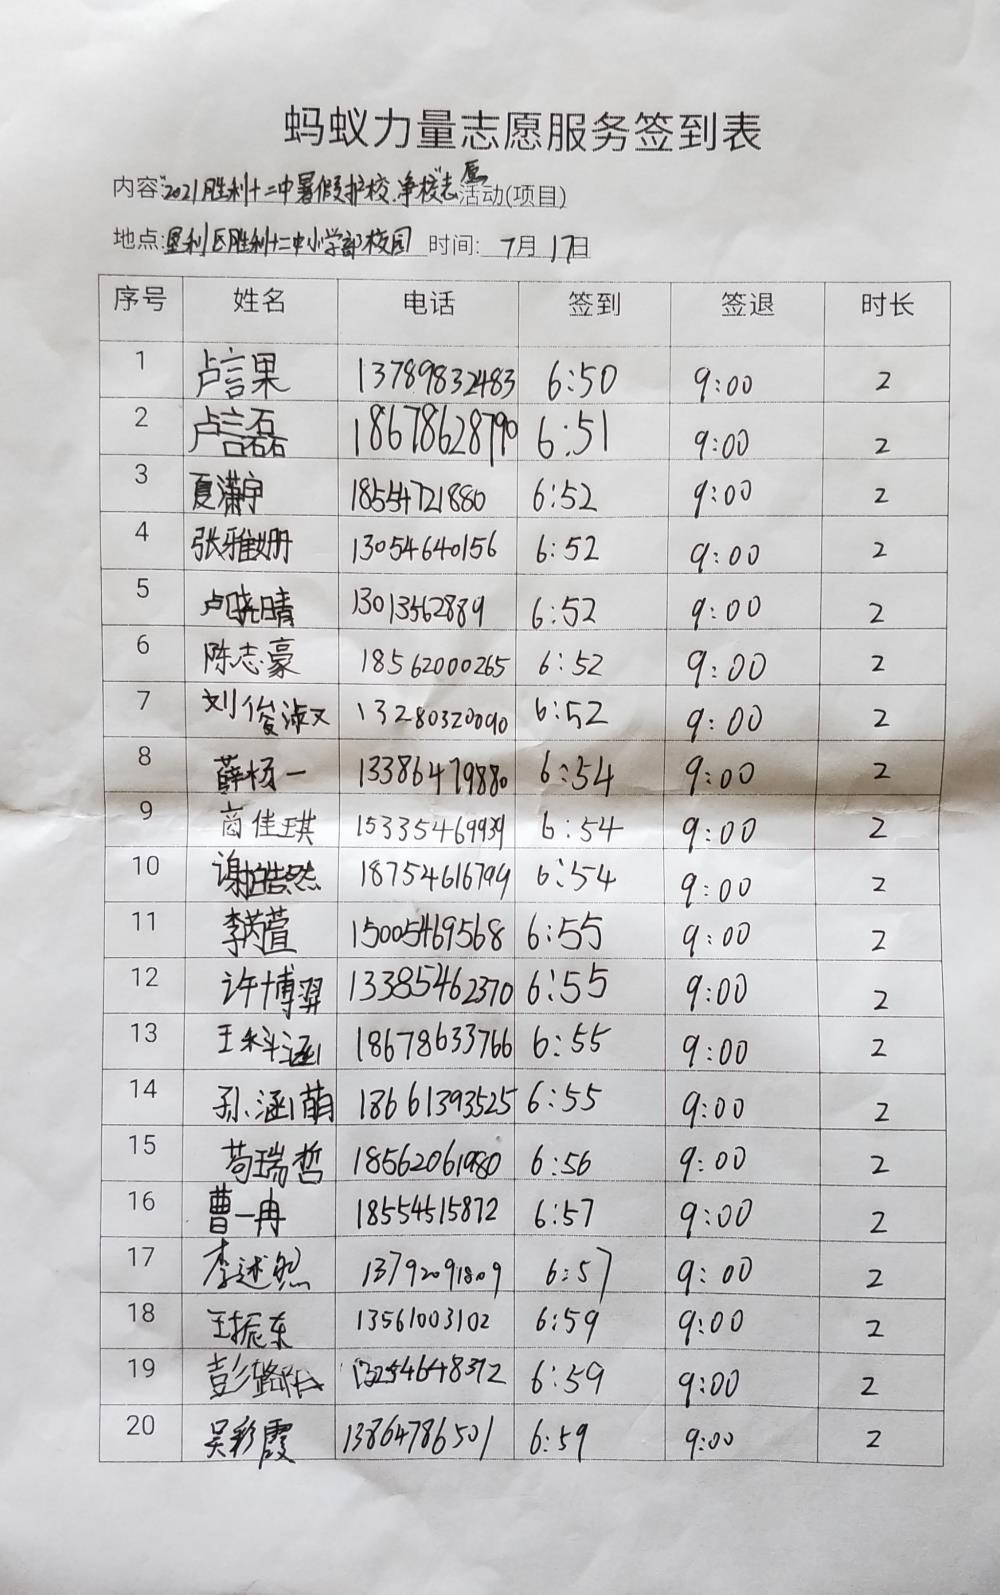 蚂蚁力量志愿服务签到表
内容:"2021胜利十二中暑假护校、净校"志愿活动(项目)
地点:垦利区胜利十二中小学部校园 时间: 7月17日
序号 姓名 电话 签到 签退 时长
1 卢言果 13789832483 6:50 9:00 2
2 卢言磊 18678628790 6:51 9:00 2
3 夏潇宇 18554721880 6:52 9:00 2
4 张雅姗 13054640156 6:52 9:00 2
5 卢晓晴 13013562889 6:52 9:00 2
6 陈志豪 18562000265 6:52 9:00 2
7 刘俊淑 13280320090 6:52 9:00 2
8 薛杨一 13386479880 6:54 9:00 2
9 商佳琪 15335469939 6:54 9:00 2
10 谢皓然 18754616799 6:54 9:00 2
11 李芮萱 15005469568 6:55 9:00 2
12 许博羿 13385462370 6:55 9:00 2
13 王科涵 18678633766 6:55 9:00 2
14 孙涵萌 18661393525 6:55 9:00 2
15 苟瑞哲 18562061980 6:56 9:00 2
16 曹一冉 18554515872 6:57 9:00 2
17 李述煦 13792091809 6:57 9:00 2
18 王振东 13561003102 6:59 9:00 2
19 彭璐阳 13254648372 6:59 9:00 2
20 吴彩霞 13864786501 6:59 9:00 2